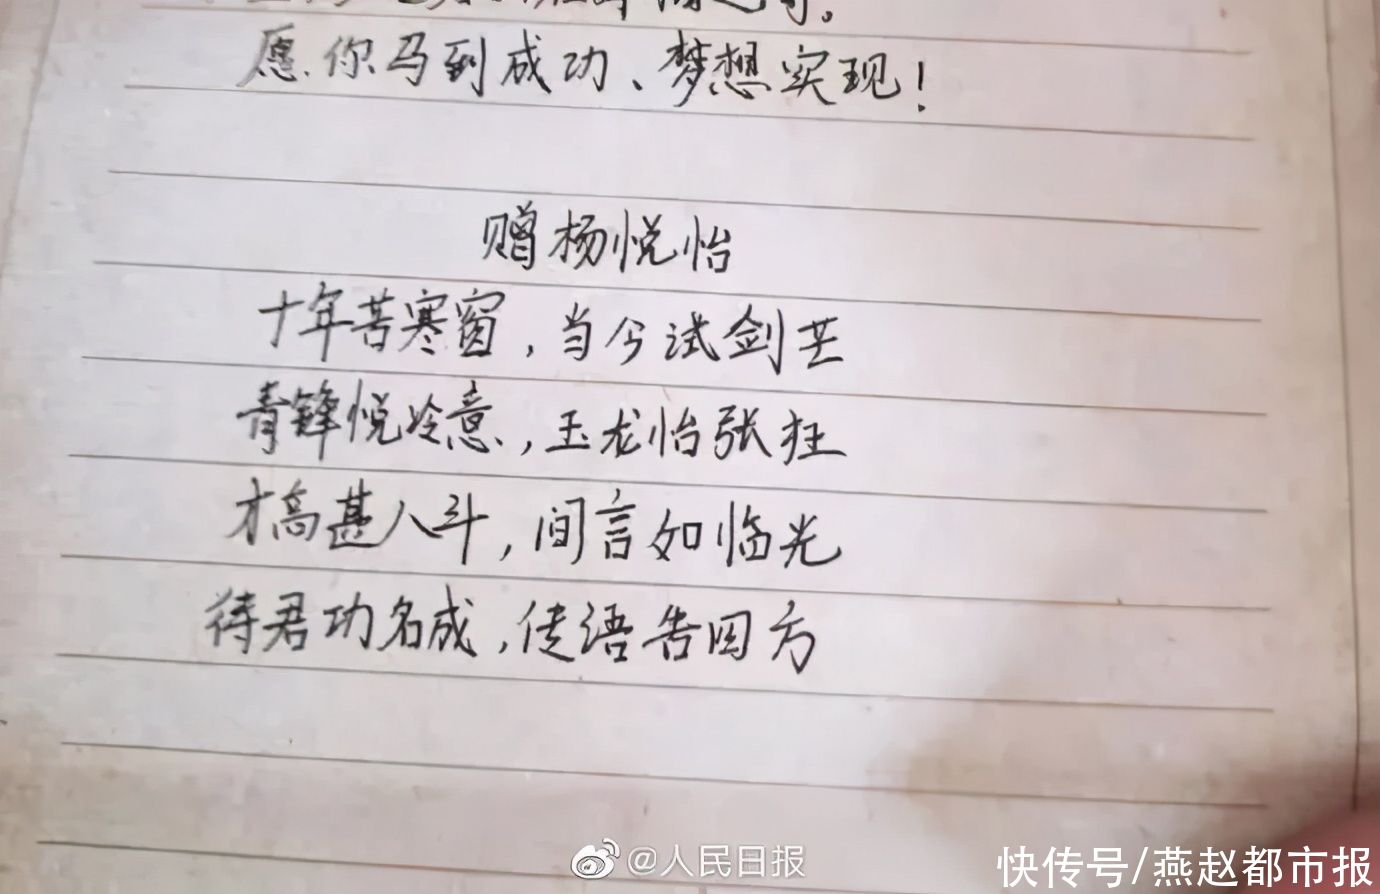 愿你马到成功、梦想实现！
赠杨悦怡
十年苦寒窗，当今试剑芒
青锋悦冷意，玉龙怡张狂
才高甚八斗，间言如临光
待君功名成，传语告四方
@人民日报
快传号/燕赵都市报